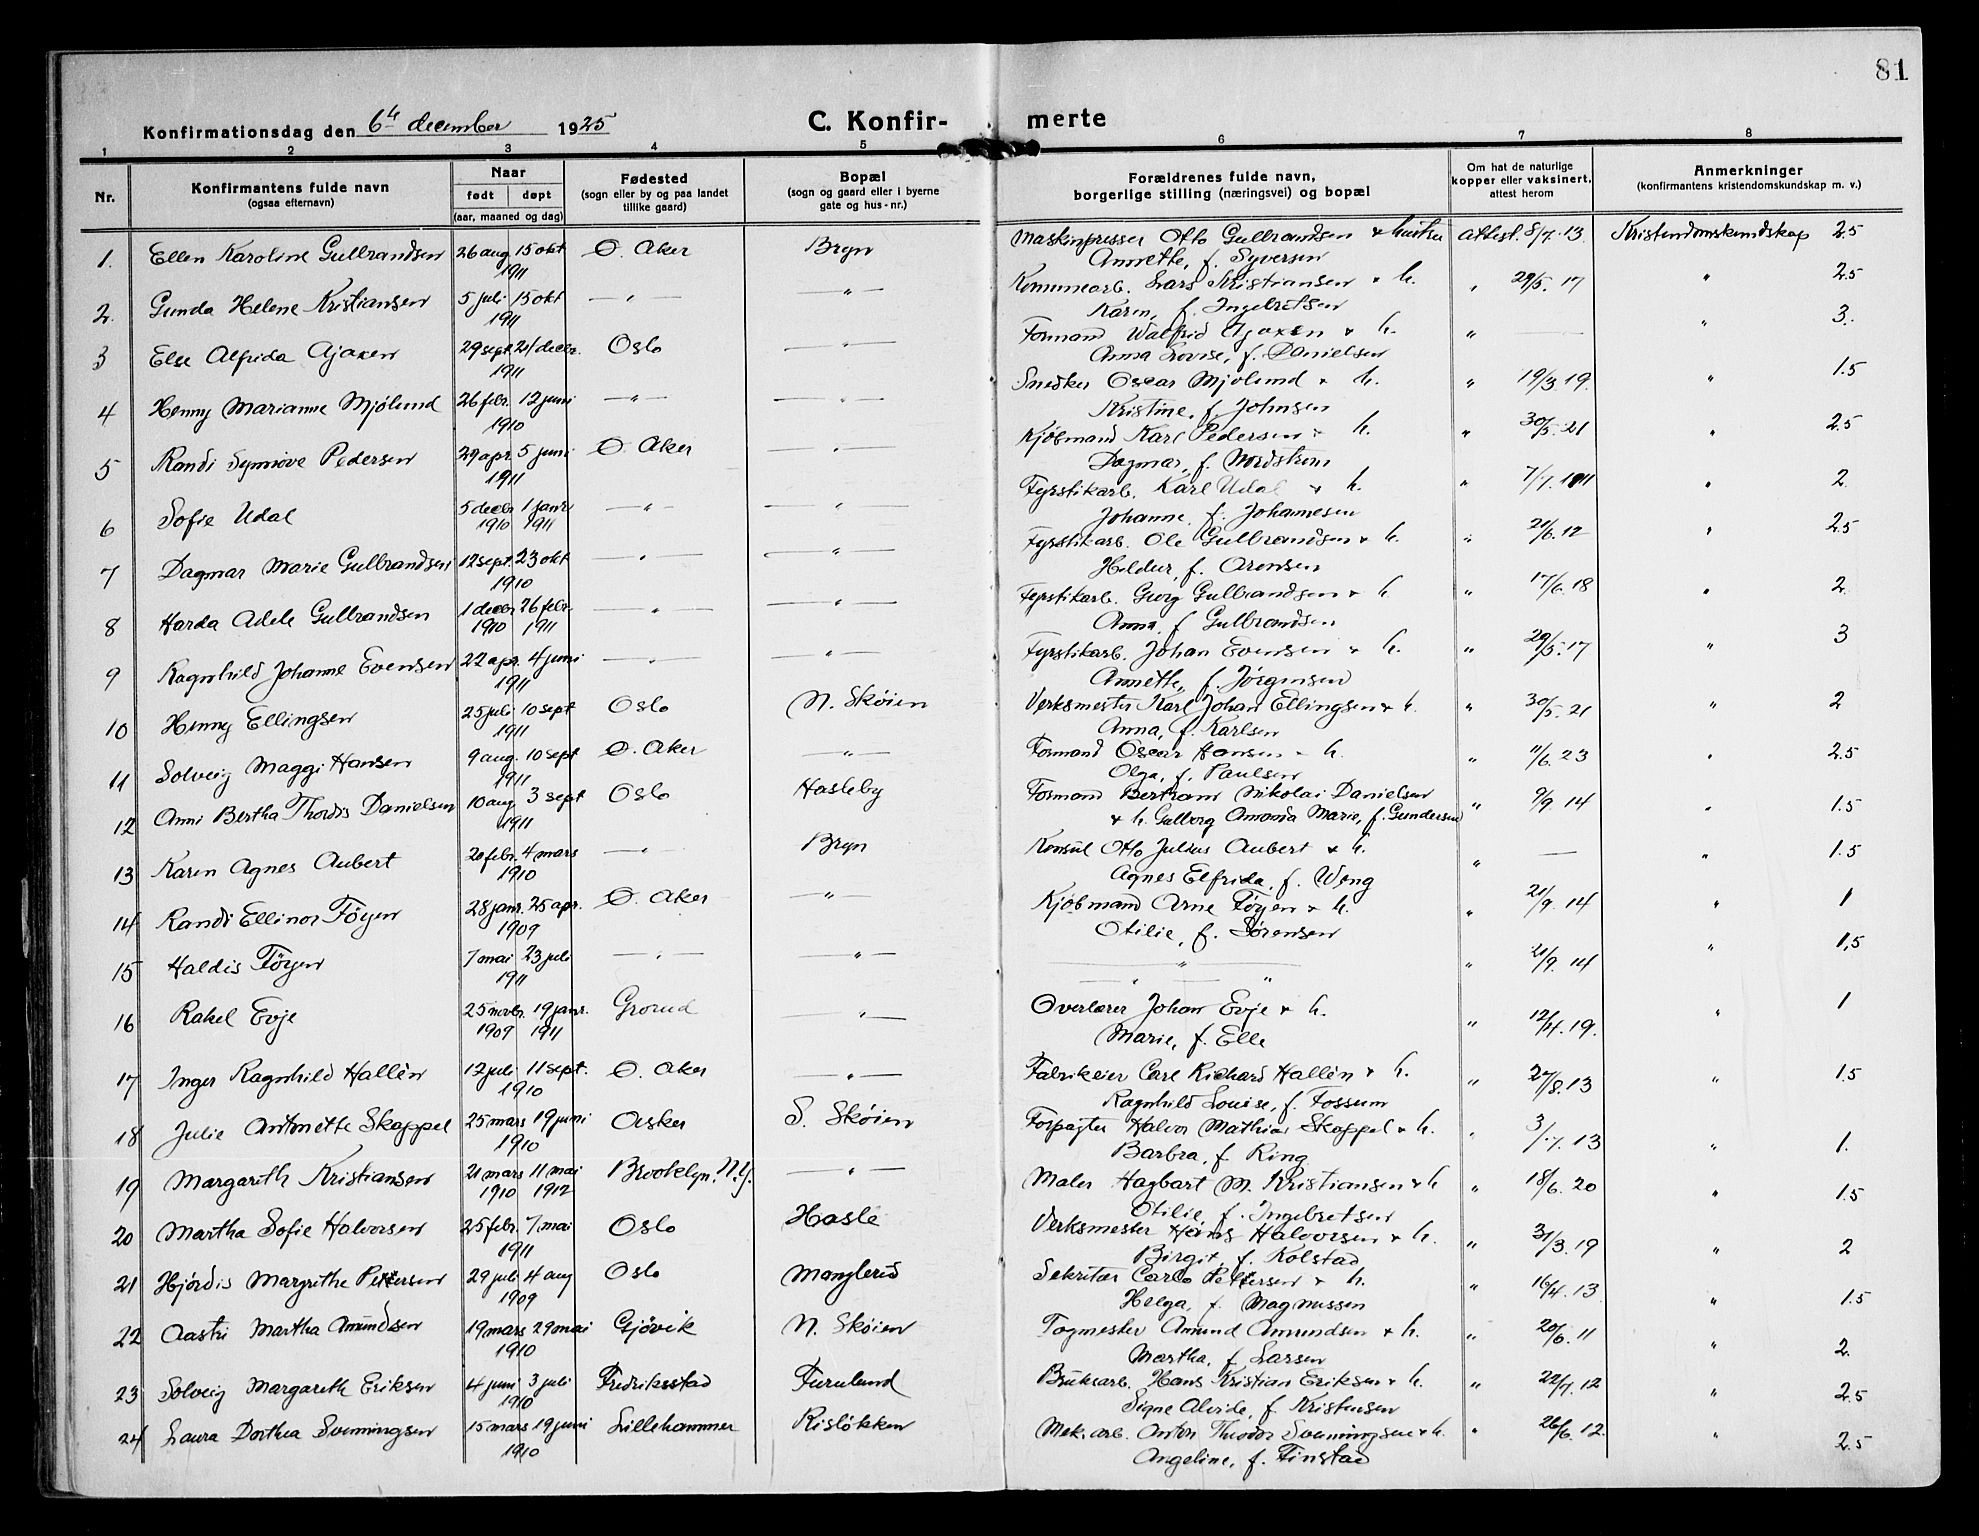 81
Konfirmationsdag den 6te december 1925 C. Konfir- merte
1 2 3 4 5 6 7 8
Nr. Konfirmantens fulde navn (ogsaa efternavn) Naar født døpt (aar, maaned og dag) Fødested (sogn eller by og paa landet tillike gaard) Bopæl (sogn og gaard eller i byerne gate og hus-nr.) Forældrenes fulde navn, borgerlige stilling (næringsvei) og bopæl Om hat de naturlige kopper eller vaksinert, attest herom Anmerkninger (konfirmantens kristendomskundskap m. v.)
1. Ellen Karoline Gulbrandsen 26 aug. 15 okt 1911 Ø. Aker Bryn Maskinpresser Otto Gulbrandsen & hustru Annette, f. Syversen attest. 8/7. 13. Kristendomskundskap 2.5
2. Gunda Helene Kristiansen 5 juli 15 okt 1911 — " — — " — Kommunearb. Lars Kristiansen & h. Karen, f. Ingebretsen " 29/5. 17 " 2.5
3 Else Alfrida Ajaxen 29 sept. 21 decbr. 1911 Oslo — " — Formand Walfrid Ajaxen & h. Anna Lovise, f. Danielsen " — " 3.
4 Henny Marianne Mjölund 26 febr. 12 juni 1910 — " — — " — Snedker Oscar Mjölund & h. Kristine, f. Johnsen " 19/3 19. " 1.5
5 Randi Synnöve Pedersen 29 apr. 5 juni 1911 Ø. Aker — " — Kjøbmand Karl Pedersen & h. Dagmar, f. Nordström " 30/5. 21 " 2.5
6 Sofie Udal 5 decbr 1910 1 janr. 1911 — " — — " — Fyrstikarb. Karl Udal & h. Johanne, f. Johannesen " 7/7. 1911 " 2
7 Dagmar Marie Gulbrandsen 12 sept. 23 okt 1910 — " — — " — Fyrstikarb. Ole Gulbrandsen & h. Heldur, f. Arensen " 21/6. 12 " 2.5
8 Harda Adele Gulbrandsen 1 decbr 1910 26 febr. 1911 — " — — " — Fyrstikarb. Georg Gulbrandsen & h Anna, f Gulbrandsen " 17/6. 18 " 2
9 Ragnhild Johanne Evensen 22 apr. 4 juni 1911 — " — — " — Fyrstikarb. Johan Evensen & h. Annette, f. Jörgensen " 29/5. 17 " 3
10 Henny Ellingsen 25 juli 10 sept 1911 Oslo N. Skøien Verksmester Karl Johan Ellingsen & h. Anna, f. Karlsen " 30/5. 21 " 2
11 Solveig Maggi Hansen 9 aug. 10 sept 1911 Ø. Aker — " — Formand Oscar Hansen & h. Olga, f. Paulsen " 11/6. 23 " 2.5
12 Anni Bertha Thordis Danielsen 10 aug 3 sept 1911 Oslo Hasleby Formand Bertram Nikolai Danielsen & h. Gulborg Amanda Marie, f. Gundersen " 9/9. 14 " 1.5
13 Karen Agnes Aubert 20 febr. 4 mars 1910 — " — Bryn Konsul Otto Julius Aubert & h. Agnes Elfrida, f. Weng " — " 1.5
14 Randi Ellinor Föyen 28 janr. 25 apr. 1909 Ø. Aker — " — Kjøbmand Arne Föyen & h. Otilie, f. Sörensen " 21/9. 14 " 1
15 Haldis Föyen 7 mai 23 juli 1911 — " — — " — — " — " " " 21/9. 14 " 1,5
16 Rakel Evje 25 novbr. 1909 19 janr. 1911 Grorud — " — Overlærer Johan Evje & h. Marie, f. Elle " 12/4. 19. " 1
17 Inger Ragnhild Hallén 12 juli 11 sept. 1910 Ø. Aker — " — Fabrikeier Carl Richard Hallén & h. Ragnhild Louise, f. Fossum " 27/8. 13 " 1.5
18 Julie Antonette Skoppel 25 mars 19 juni 1910 Asker S. Skøien Forpagter Halvor Mathias Skoppel & h. Barbra, f. Ring " 3/7. 13 " 1.
19 Margareth Kristiansen 21 mars 1910 11 mai 1912 Brooklyn. N.Y. — " — Maler Hagbart M. Kristiansen & h Otilie, f. Ingebretsen " 18/6. 20 " 1.5
20 Martha Sofie Halvorsen 25 febr. 7. mai 1911 Oslo Hasle Verksmester Hans Halvorsen & h. Birgit, f. Kolstad " 31/3. 19 " 2
21 Hjördis Margrethe Pettersen 29 juli 4 aug 1909 Oslo Manglerud Sekretær Carlo Pettersen & h. Helga, f. Magnussen " 16/4. 13. " 1.5
22 Aastri Martha Amundsen 19 mars 29 mai 1910 Gjövik N. Skøien Togmester Amund Amundsen & h. Martha, f. Larsen " 20/6. 11 " 2.
23 Solveig Margareth Eriksen 4 juni 3 juli 1910 Fredriksstad Furulund Bruksarb. Hans Kristian Eriksen & h. Signe Alvide, f. Kristensen " 22/7. 12 " 2.5
24 Laura Dorthea Svenningsen 15 mars 19 juni 1910 Lillehammer Risløkken Mek. arb. Anton Theodor Svenningsen & h. Angeline, f. Finstad " 26/6. 12. " 2.5